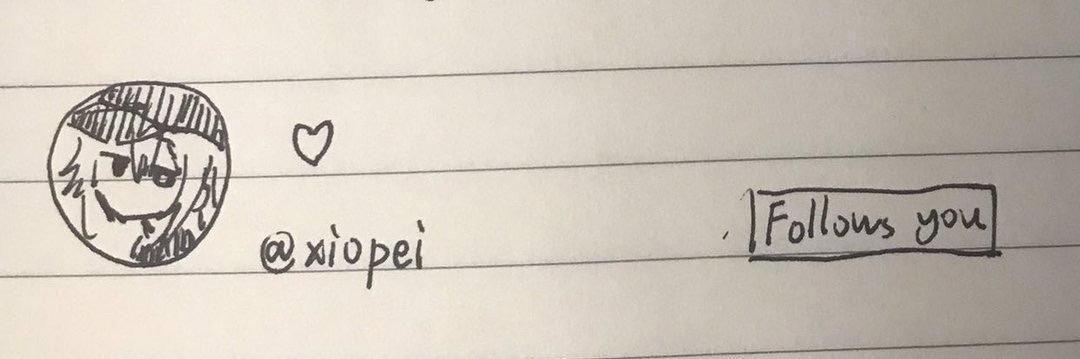 ♡
@xiopei
Follows you